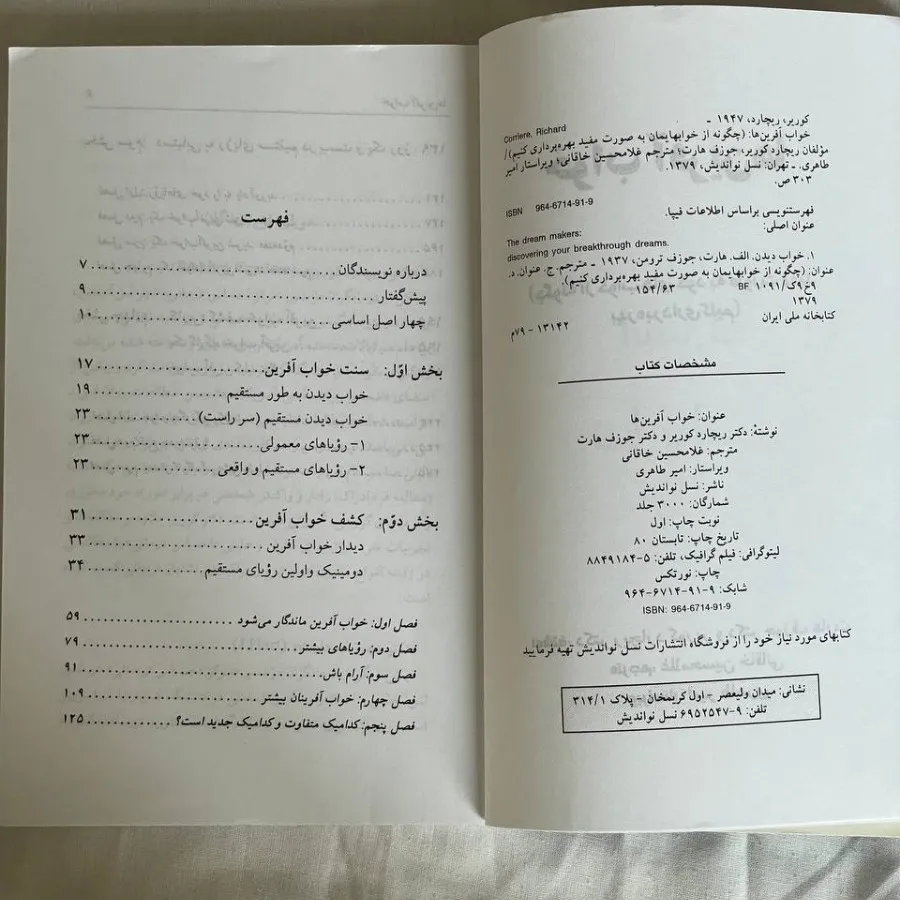 کوریر، ریچارد، ۱۹۴۷ ـ
Corriere, Richard
خواب آفرین‌ها: (چگونه از خوابهایمان به صورت مفید بهره‌برداری کنیم)/
مؤلفان ریچارد کوریر، جوزف هارت؛ مترجم غلامحسین خاقانی؛ ویراستار امیر
طاهری. ـ تهران: نسل نواندیش، ۱۳۷۹.
۳۰۳ ص.
ISBN 964-6714-91-9
فهرستنویسی براساس اطلاعات فیپا.
عنوان اصلی:
The dream makers:
discovering your breakthrough dreams.
۱. خواب دیدن. الف. هارت، جوزف ترومن، ۱۹۳۷ ـ مترجم. ج. عنوان. د.
عنوان: (چگونه از خوابهایمان به صورت مفید بهره‌برداری کنیم).
۹خ۹ک/ BF ۱۰۹۱ ۱۵۴/۶۳
۱۳۷۹
کتابخانه ملی ایران ۱۳۱۴۲ - ۷۹م
مشخصات کتاب
عنوان: خواب آفرین‌ها
نوشتهٔ: دکتر ریچارد کوریر و دکتر جوزف هارت
مترجم: غلامحسین خاقانی
ویراستار: امیر طاهری
ناشر: نسل نواندیش
شمارگان: ۳۰۰۰ جلد
نوبت چاپ: اول
تاریخ چاپ: تابستان ۸۰
لیتوگرافی: فیلم گرافیک، تلفن: ۵-۸۸۴۹۱۸۴
چاپ: نورتکس
شابک: ۹-۹۱-۶۷۱۴-۹۶۴
ISBN: 964-6714-91-9
کتابهای مورد نیاز خود را از فروشگاه انتشارات نسل نواندیش تهیه فرمایید
نشانی: میدان ولیعصر - اول کریمخان - پلاک ۳۱۴/۱
تلفن: ۹-۶۹۵۲۵۴۷ نسل نواندیش
فهرست
درباره نویسندگان ........ ۷
پیش‌گفتار ........ ۹
چهار اصل اساسی ........ ۱۰
بخش اوّل: سنت خواب آفرین ........ ۱۷
خواب دیدن به طور مستقیم ........ ۱۹
خواب دیدن مستقیم (سر راست) ........ ۲۳
۱- رؤیاهای معمولی ........ ۲۳
۲- رؤیاهای مستقیم و واقعی ........ ۲۳
بخش دوّم: کشف خواب آفرین ........ ۳۱
دیدار خواب آفرین ........ ۳۳
دومینیک واولین رؤیای مستقیم ........ ۳۴
فصل اول: خواب آفرین ماندگار می‌شود ........ ۵۹
فصل دوم: رؤیاهای بیشتر ........ ۷۹
فصل سوم: آرام باش ........ ۹۱
فصل چهارم: خواب آفرینان بیشتر ........ ۱۰۹
فصل پنجم: کدامیک متفاوت و کدامیک جدید است؟ ........ ۱۲۵